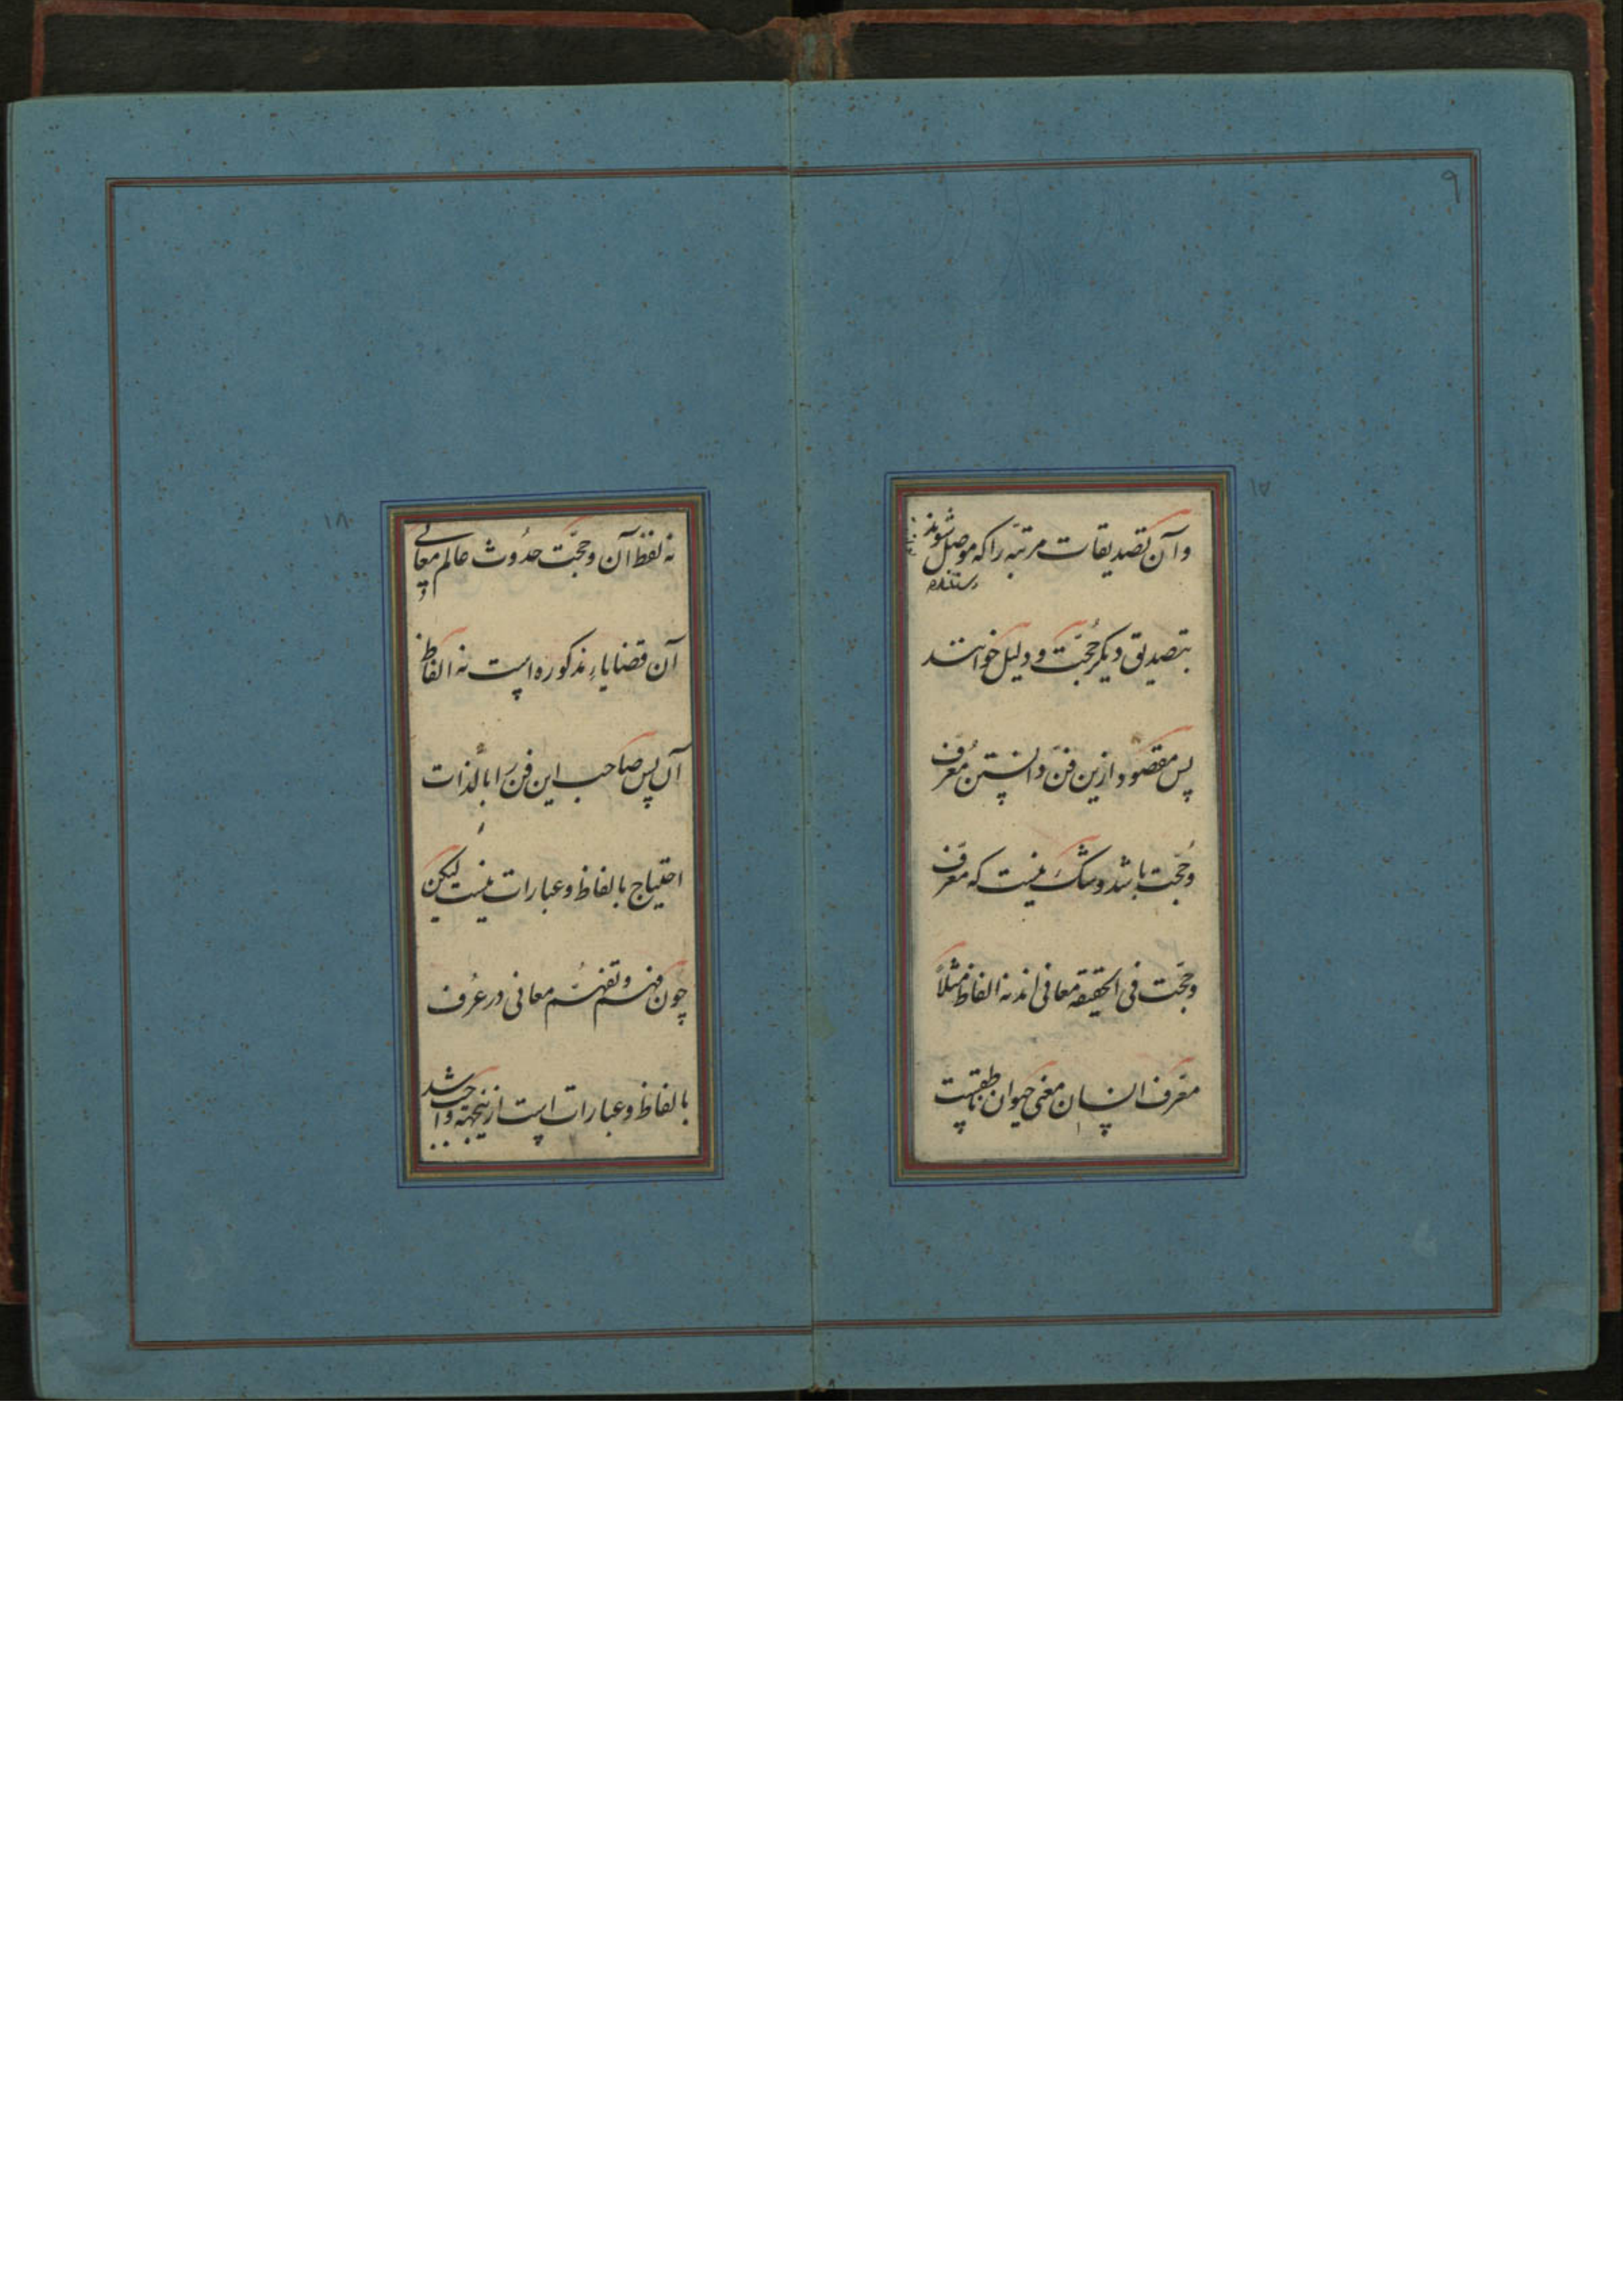 ۹
۱۷
وآن تصدیقات مرتبه را که موصل شوند
بتصدیق دیگر حُجّت و دلیل خوانند
پس مقصود ازین فنّ دانستن مُعرّف
وحُجّت باشد و شک نیست که معرّف
وحجّت فی الحقیقه معانی اند نه الفاظ مثلاً
معرّف انسان معنی حیوان ناطقست
۱۸
نه لفظ آن وحجّت حدُوث عالم معانی
آن قضایاءِ مذکوره است نه الفاظ
آن پس صاحب این فن را بالذات
احتیاج بالفاظ وعبارات نیست لیکن
چون فهم وتفهُّم معانی در عُرف
بالفاظ وعبارات است ازینجهة واجب شد